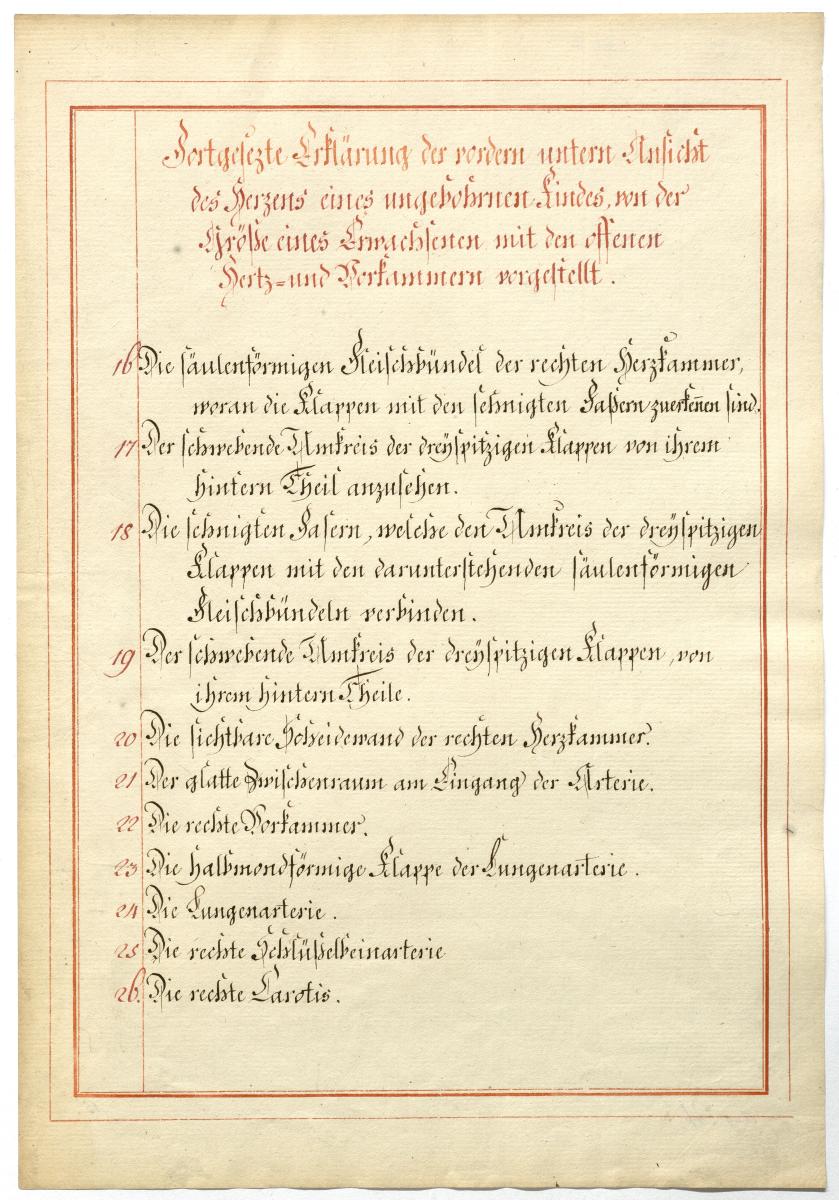 Fortgesezte Erklärung der vordern untern Ansicht
des Herzens eines ungebohrnen Kindes, von der
Größe eines Erwachsenen mit den offenen
Hertz=und Vorkammern vorgestellt.
16 Die säulenförmigen Fleischbündel der rechten Herzkammer,
woran die Klappen mit den sehnigten Faßern zuerkeñen sind.
17 Der schwebende Umkreis der dreÿspitzigen Klappen von ihrem
hintern Theil anzusehen.
18 Die sehnigten Fasern, welche den Umkreis der dreÿspitzigen
Klappen mit den darunterstehenden säulenförmigen
Fleischbündeln verbinden.
19 Der schwebende Umkreis der dreÿspitzigen Klappen, von
ihrem hintern Theile.
20 Die sichtbare Scheidewand der rechten Herzkammer.
21 Der glatte Zwischenraum am Eingang der Arterie.
22 Die rechte Vorkammer.
23 Die halbmondförmige Klappe der Lungenarterie.
24 Die Lungenarterie.
25 Die rechte Schlüßelbeinarterie
26. Die rechte Carotis.